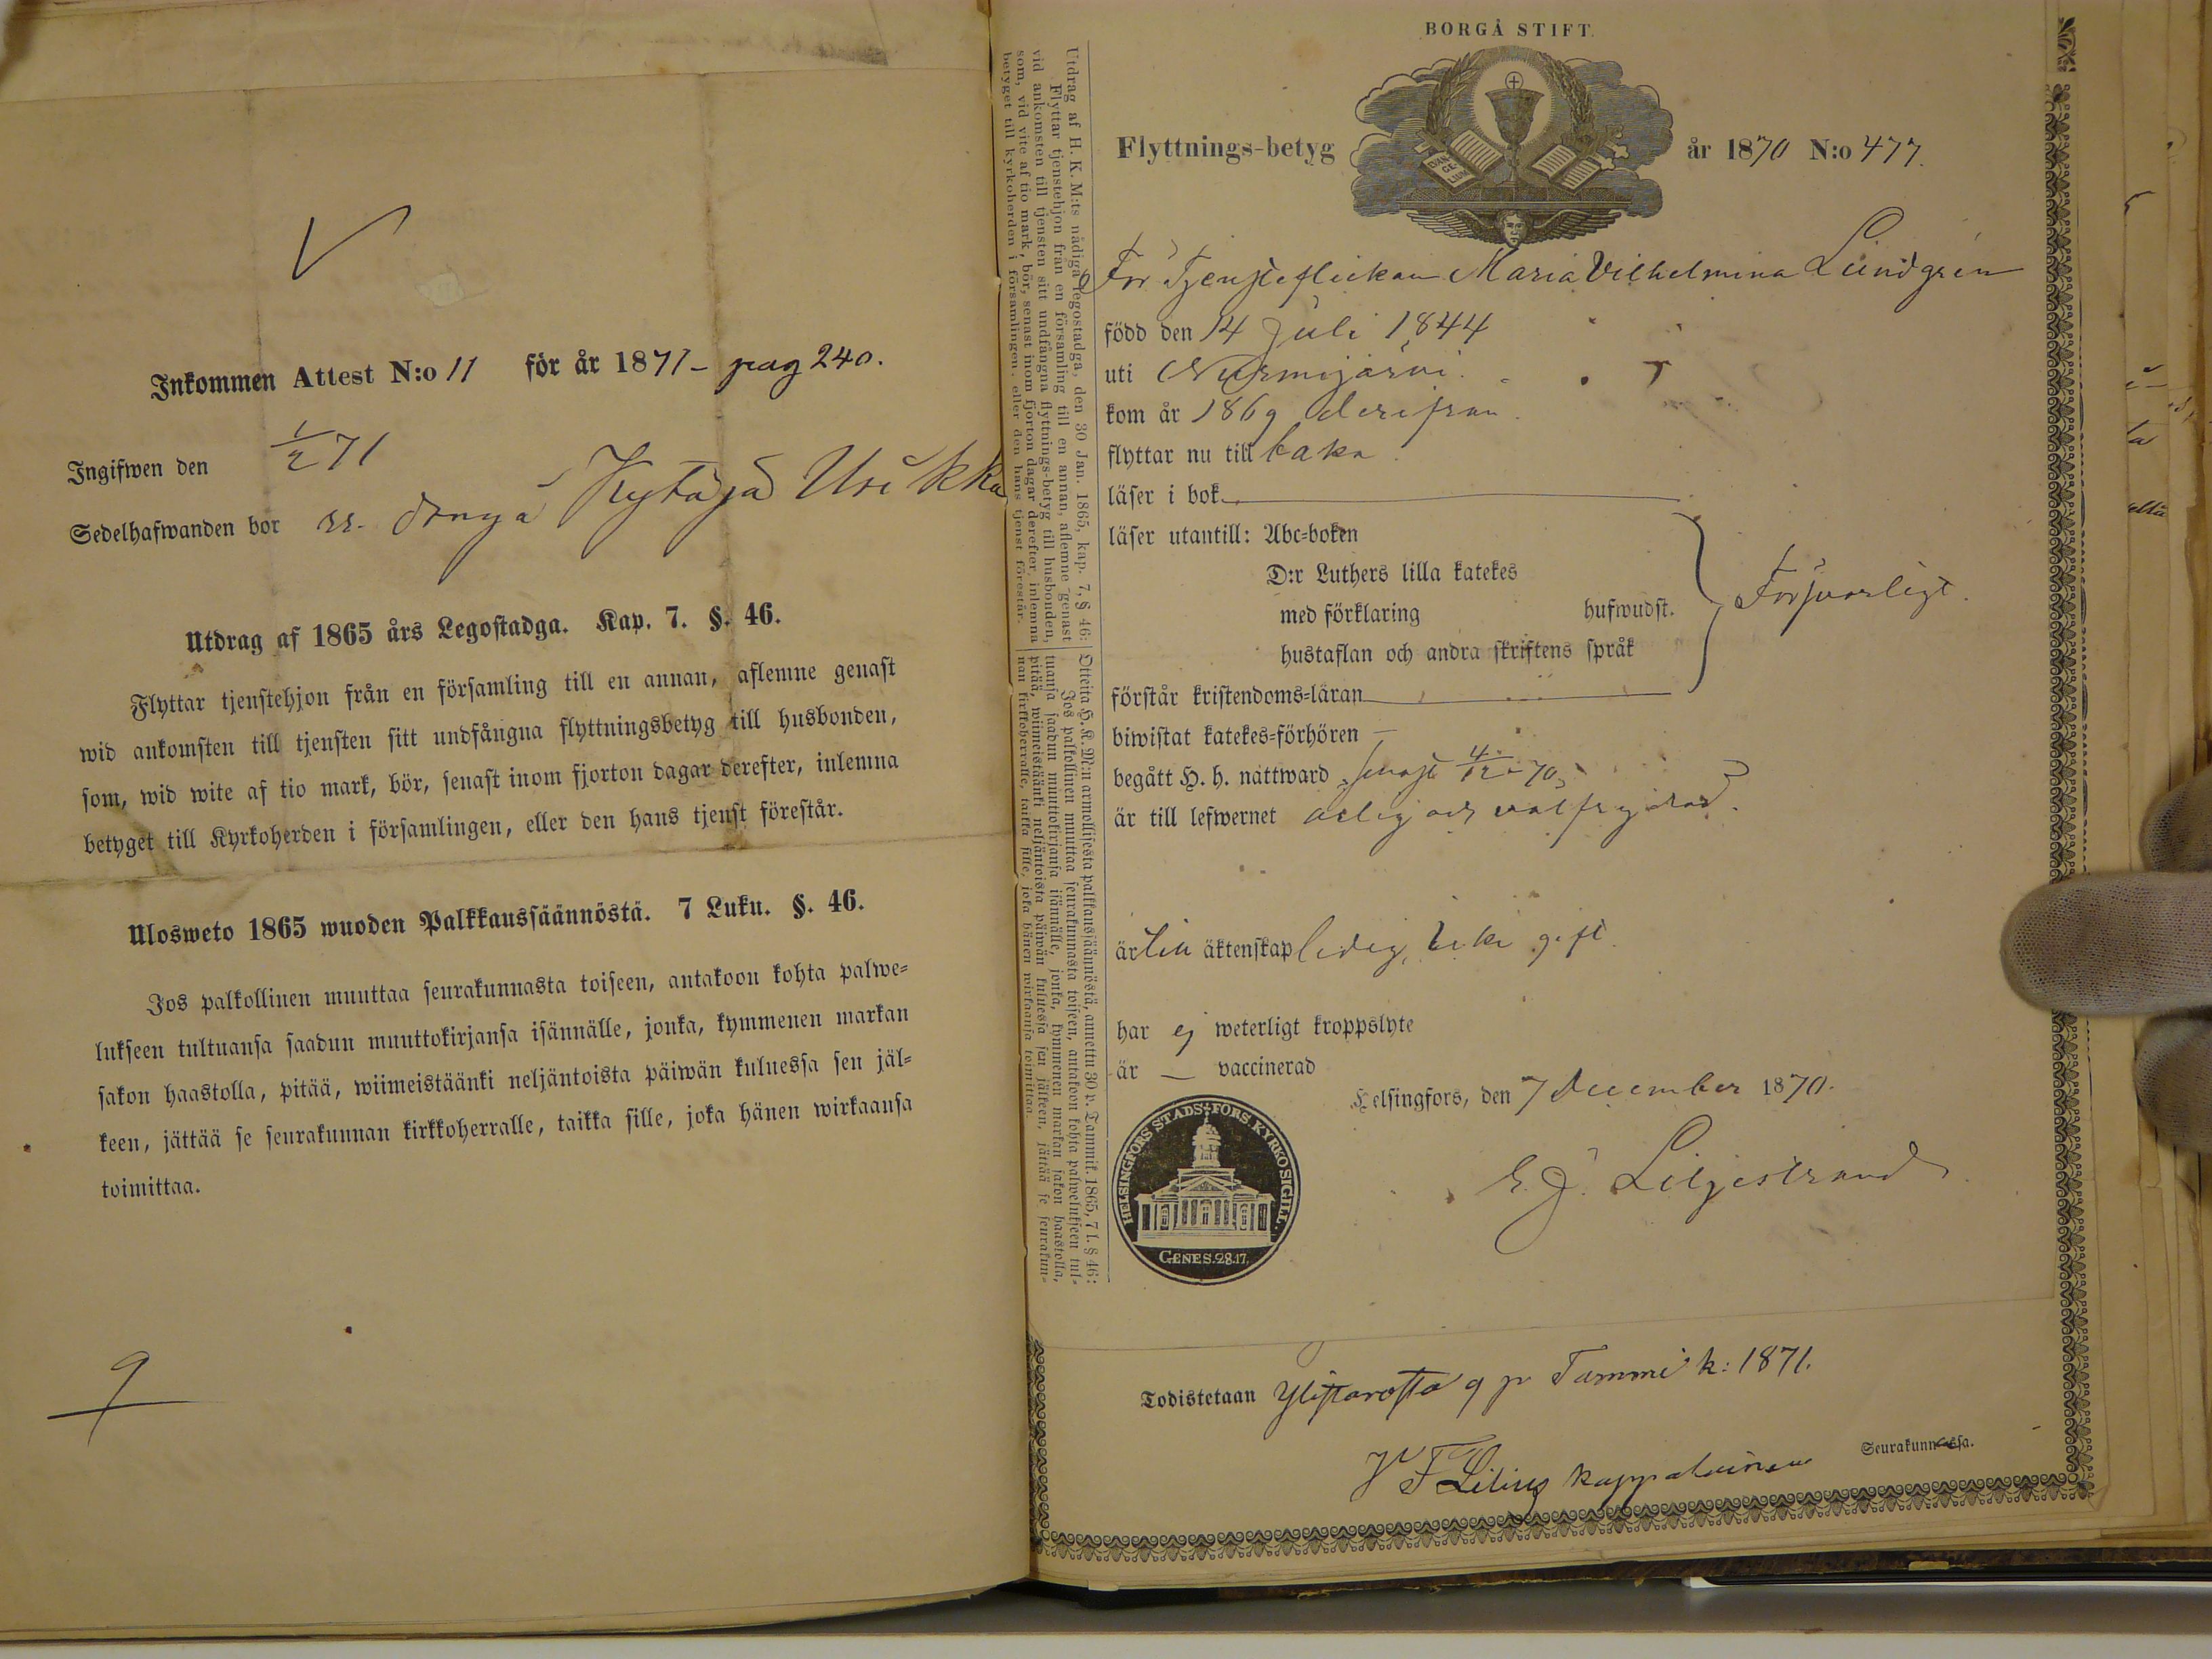 Inkommen Attest N:o 11 för år 1871 – pag 240.
Ingifwen den 1/2 71
Sedelhafwanden bor Kytäjä Usikka
Utdrag af 1865 års Legostadga. Kap. 7. §. 46.
Flyttar tjenstehjon från en församling till en annan, aflemne genast
wid ankomsten till tjensten sitt undfångna flyttningsbetyg till husbonden,
som, wid wite af tio mark, bör, senast inom fjorton dagar derefter, inlemna
betyget till Kyrkoherden i församlingen, eller den hans tjenst förestår.
Ulosweto 1865 wuoden Palkkaussäännöstä. 7 Luku. §. 46.
Jos palkollinen muuttaa seurakunnasta toiseen, antakoon kohta palwe-
lukseen tultuansa saadun muuttokirjansa isännälle, jonka, kymmenen markan
sakon haastolla, pitää, wiimeistäänki neljäntoista päiwän kuluessa sen jäl-
keen, jättää se seurakunnan kirkkoherralle, taikka sille, joka hänen wirkaansa
toimittaa.
9
Utdrag af H. K. M:ts nådiga legostadga, den 30 Jan. 1865, kap. 7, § 46:
Flyttar tjenstehjon från en församling till en annan, aflemne genast
vid ankomsten till tjensten sitt undfångna flyttnings-betyg till husbonden,
som, vid vite af tio mark, bör, senast inom fjorton dagar derefter, inlemna
betyget till kyrkoherden i församlingen, eller den hans tjenst förestår.
Otteita H. K. M:n armollisesta palkkaussäännöstä, annettu 30 p. Tammik. 1865, 7 l. § 46:
Jos palkollinen muuttaa seurakunnasta toiseen, antakoon kohta palwelukseen tul-
tuansa saadun muuttokirjansa isännälle, jonka, kymmenen markan sakon haastolla,
pitää, wiimeistäänki neljäntoista päiwän kuluessa sen jälkeen, jättää se seurakun-
nan kirkkoherralle, taikka sille, joka hänen wirkaansa toimittaa.
BORGÅ STIFT.
Flyttnings-betyg år 1870 N:o 477.
EVAN-
GE-
LIUM
För Tjensteflickan Maria Vilhelmina Lindgrén
född den 14 Juli 1844
uti Nurmijärvi.
kom år 1869 derifrån.
flyttar nu till baka.
läser i bok
läser utantill: Abc-boken
D:r Luthers lilla katekes
med förklaring hufwudst. Försvarligt.
hustaflan och andra skriftens språk
förstår kristendoms-läran
biwistat katekes-förhören –
begått H. h. nattward senast 4/12 – 70,
är till lefwernet ärlig och välfrejdad.
är till äktenskap ledig, icke gift.
har ej weterligt kroppslyte
är — vaccinerad
Helsingfors, den 7 December 1870.
E. J. Liljestrand
HELSINGFORS STADS FÖRS. KYRKOSIGILL.
GENES. 28.17.
Todistetaan Ylistarosta 9 p Tammi k: 1871.
Seurakunnassa.
Lilius kappalainen